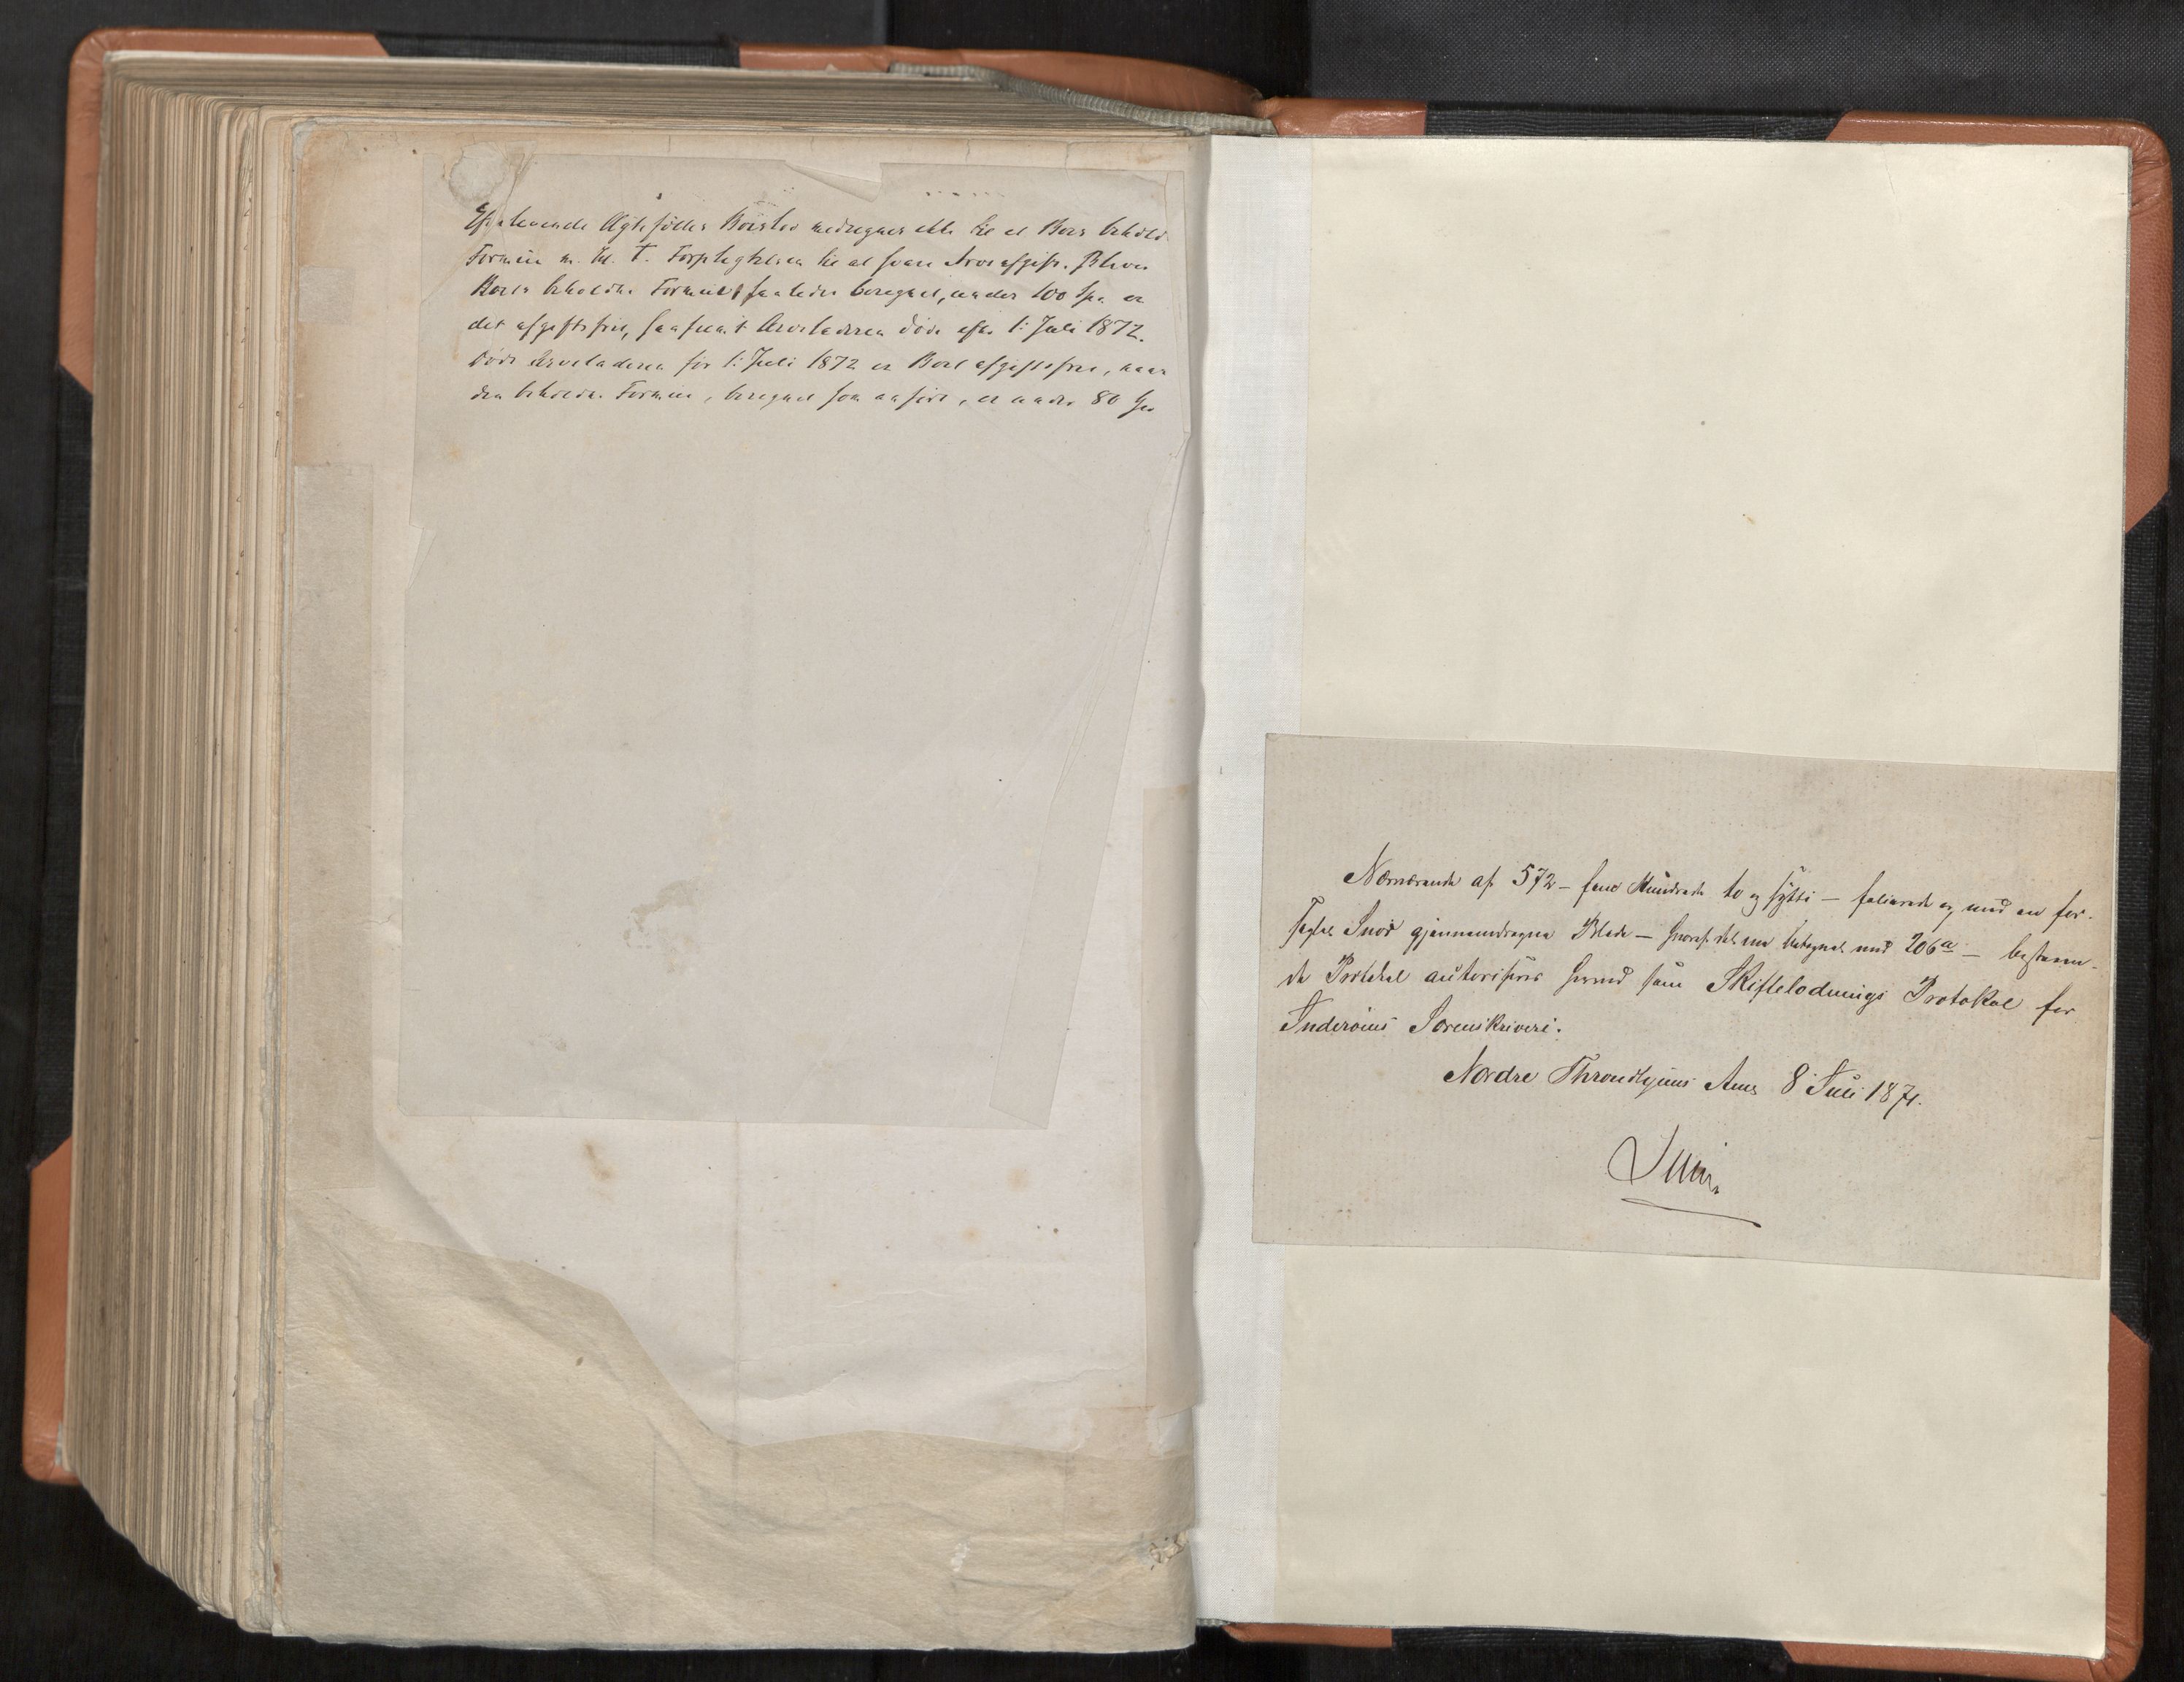 Efterlevende Ægtefælles Boeslod medregnes ikke til et Boes behold.
Formue m. H. t. Forpligtelsen til at svare Arveafgift. Bliver
Boets beholdne Formue, saaledes beregnet, under 100 Spd. er
det afgiftsfrit, saafremt Arveladeren døde efter 1. Juli 1872.
Døde Arveladeren før 1. Juli 1872 er Boet afgiftsfrit, naar
den beholdne Formue, beregnet som anført, er under 80 Spd
Nærværende af 572 – fem Hundrede to og sytti – folierede og med en for-
seglet Snor gjennemdragne Blade – hvoraf det ene betegnet med 206a – bestaaen-
de Protokol autoriseres herved som Skiftelodnings Protokol for
Inderøens Sorenskriveri.
Nordre Throndhjems Amt 8 Juli 1871.